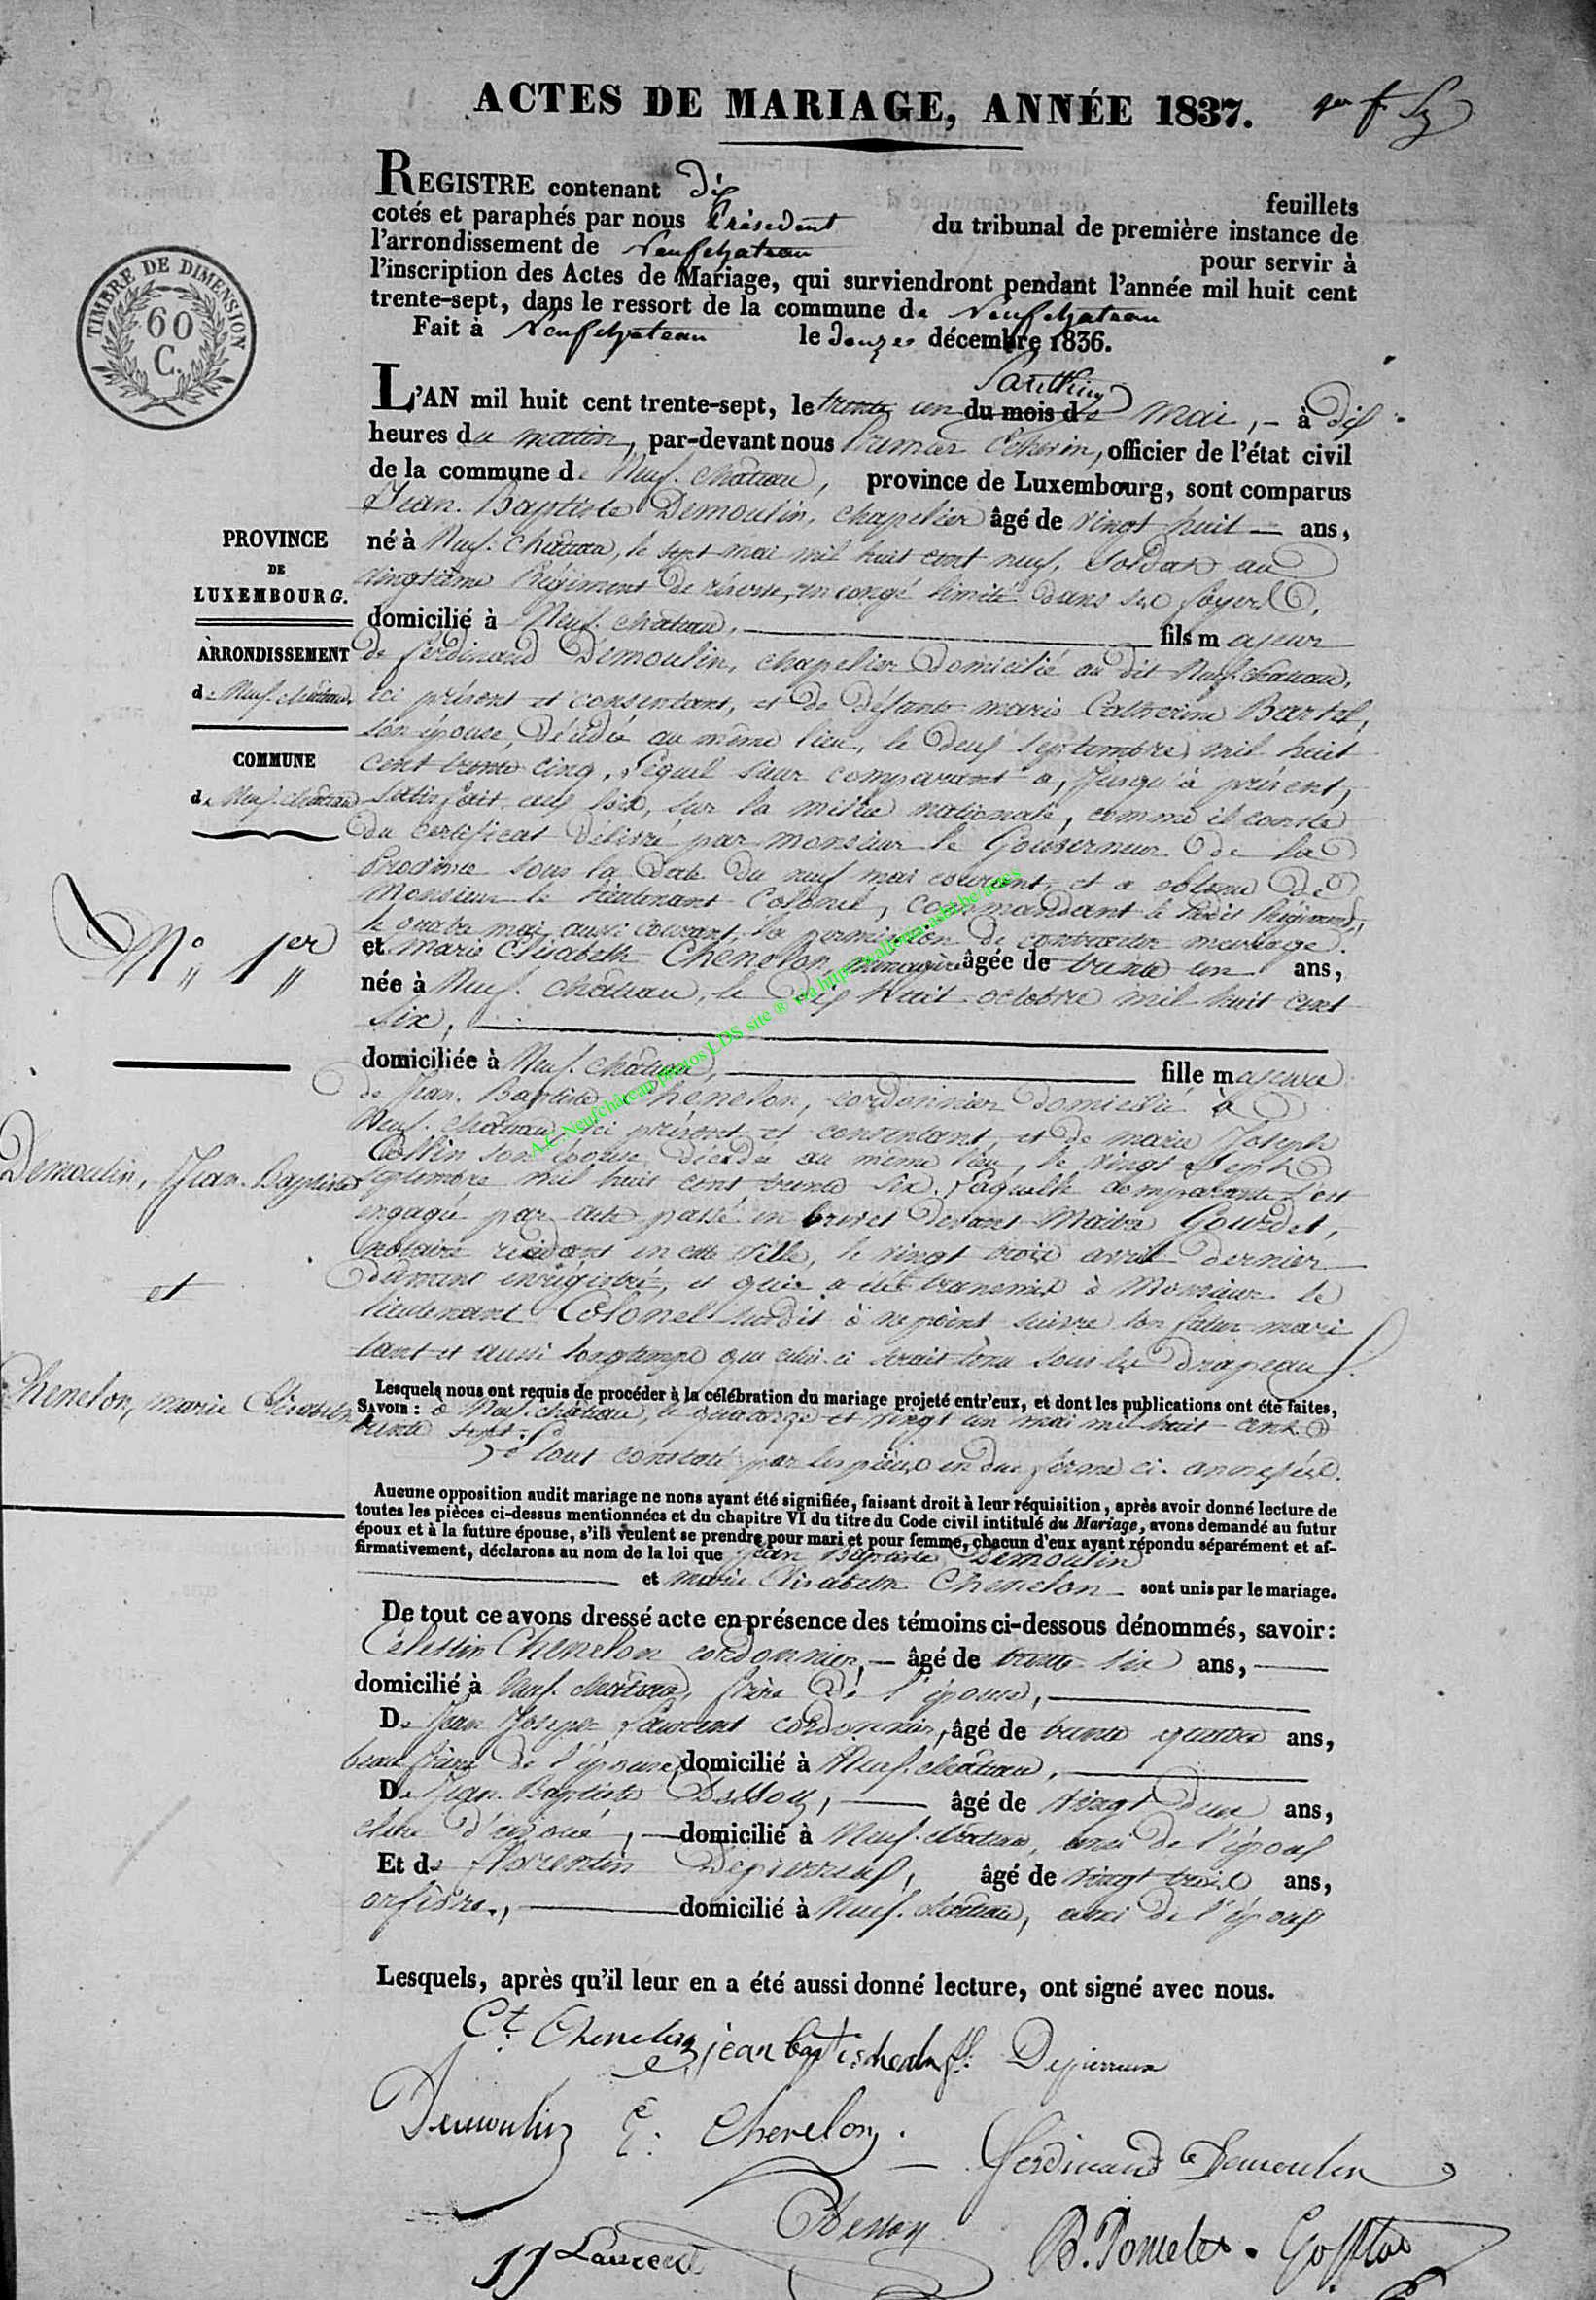 ACTES DE MARIAGE, ANNÉE 1837.
REGISTRE contenant dix feuillets
cotés et paraphés par nous Président du tribunal de première instance de
l'arrondissement de Neufchateau pour servir à
l'inscription des Actes de Mariage, qui surviendront pendant l'année mil huit cent
trente-sept, dans le ressort de la commune de Neufchateau
Fait à Neufchateau le douze décembre 1836.
TIMBRE DE DIMENSION
60
C.
L'AN mil huit cent trente-sept, le trente un du mois de mai, - à dix
heures du matin, par-devant nous Premier Echevin, officier de l'état civil
de la commune de Neuf-château, province de Luxembourg, sont comparus
Jean-Baptiste Demoulin, chapelier âgé de vingt huit - ans,
né à Neuf-château, le sept mai mil huit cent neuf, soldat au
Régiment de réserve, en congé limité dans ses foyers,
domicilié à Neuf-château, fils majeur
de ferdinand Demoulin, chapelier domicilié au dit Neuf-château,
ici présent et consentant, et de défunte marie Catherine Bartel,
son épouse, décédée au même lieu, le deux septembre mil huit
cent trente cinq. Lequel sieur comparant a, jusqu'à présent,
satisfait aux loix, sur la milice nationale, comme il conste
du certificat délivré par monsieur le Gouverneur de la
Province sous la date du neuf mai courant, et a obtenu de
Monsieur le Lieutenant Colonel, commandant le dit Régiment,
le quatre mai aussi courant, la permission de contracter mariage.
et Marie Elisabeth Chenelon, ménagère âgée de trente un ans,
née à Neuf-château, le dix huit octobre mil huit cent
six,
domiciliée à Neuf-château, fille majeure
de Jean-Baptiste Chenelon, cordonnier domicilié à
Neuf-château ici présent et consentant, et de marie Joseph
son épouse décédée au même lieu, le vingt sept
septembre mil huit cent trente six. Laquelle comparante s'est
engagée par acte passé en brevet devant Maître Gourdet,
notaire résidant en cette ville, le vingt trois avril dernier
dûment enregistré, et qui a été transmis à Monsieur le
lieutenant Colonel susdit à ne point suivre son futur mari
tant et aussi longtemps que celui-ci serait tenu sous les drapeaux.
PROVINCE
DE
LUXEMBOURG.
ARRONDISSEMENT
de Neuf-château
COMMUNE
de Neuf-château
N° 1er
Demoulin, Jean-Baptiste
et
Chenelon, marie Elisabeth
Lesquels nous ont requis de procéder à la célébration du mariage projeté entr'eux, et dont les publications ont été faites,
SAVOIR : à Neuf-château, le quatorze et vingt un mai mil huit cent
trente sept.
le tout constaté par les pièces en due forme ci-annexées.
Aucune opposition audit mariage ne nous ayant été signifiée, faisant droit à leur réquisition, après avoir donné lecture de
toutes les pièces ci-dessus mentionnées et du chapitre VI du titre du Code civil intitulé du Mariage, avons demandé au futur
époux et à la future épouse, s'ils veulent se prendre pour mari et pour femme, chacun d'eux ayant répondu séparément et af-
firmativement, déclarons au nom de la loi que Jean Baptiste Demoulin
et marie Elisabeth Chenelon - sont unis par le mariage.
De tout ce avons dressé acte en présence des témoins ci-dessous dénommés, savoir :
Celestin Chenelon cordonnier, - âgé de trente six ans,
domicilié à Neuf-château, frère de l'épouse,
De Jean Joseph Laurent cordonnier, âgé de trente quatre ans,
beau frère de l'épouse, domicilié à Neuf-château,
De Jean-Baptiste Dessoy, âgé de vingt deux ans,
clerc d'avoué, domicilié à Neuf-château, ami de l'époux
Et de florentin Depierreux, âgé de vingt trois ans,
orfèvre, domicilié à Neuf-château, ami de l'époux
Lesquels, après qu'il leur en a été aussi donné lecture, ont signé avec nous.
Ct. Chenelon Depierreux
Demoulin E. Chenelon.
Ferdinand Demoulin
Dessoy
JJ Laurent
A.C. Neufchâteau photos LDS site ® via